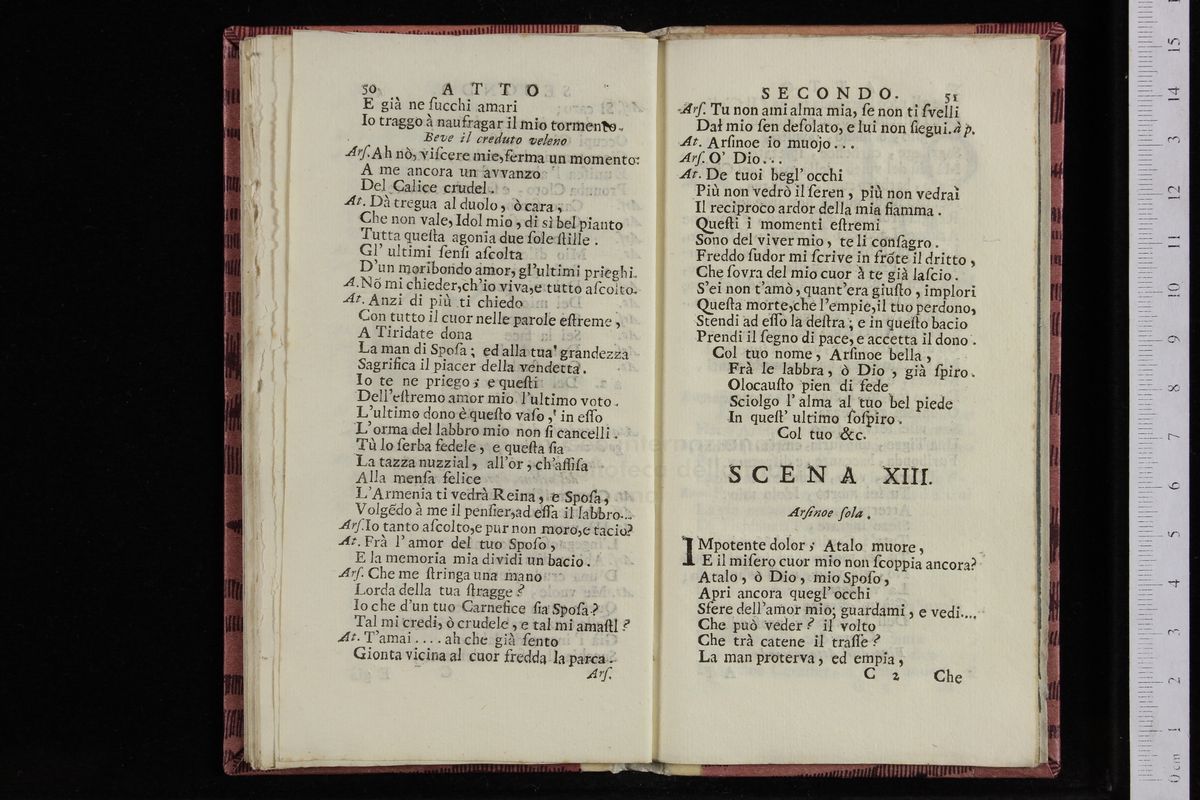 50 ATTO
E già ne ſucchi amari
Io traggo à naufragar il mio tormento.
Beve il creduto veleno
Arſ. Ah nò, viſcere mie, ferma un momento:
A me ancora un avvanzo
Del Calice crudel.
At. Dà tregua al duolo, ò cara,
Che non vale, Idol mio, di sì bel pianto
Tutta queſta agonia due ſole ſtille.
Gl' ultimi ſenſi aſcolta
D'un moribondo amor, gl'ultimi prieghi.
A. Nõ mi chieder, ch'io viva, e tutto aſcolto.
At. Anzi di più ti chiedo
Con tutto il cuor nelle parole eſtreme,
A Tiridate dona
La man di Spoſa; ed alla tua grandezza
Sagrifica il piacer della vendetta.
Io te ne priego; e queſti
Dell'eſtremo amor mio l'ultimo voto.
L'ultimo dono è queſto vaſo, in eſſo
L'orma del labbro mio non ſi cancelli.
Tù lo ſerba fedele, e queſta ſia
La tazza nuzzial, all'or, ch'aſſiſa
Alla menſa felice
L'Armenia ti vedrà Reina, e Spoſa,
Volgẽdo à me il penſier, ad eſſa il labbro...
Arſ. Io tanto aſcolto, e pur non moro, e tacio?
At. Frà l'amor del tuo Spoſo,
E la memoria mia dividi un bacio.
Arſ. Che me ſtringa una mano
Lorda della tua ſtragge?
Io che d'un tuo Carnefice ſia Spoſa?
Tal mi credi, ò crudele, e tal mi amaſtI?
At. T'amai.... ah che già ſento
Gionta vicina al cuor fredda la parca.
Arſ.
SECONDO. 51
Arſ. Tu non ami alma mia, ſe non ti ſvelli
Dal mio ſen deſolato, e lui non ſiegui. à p.
At. Arſinoe io muojo...
Arſ. O' Dio...
At. De' tuoi begl' occhi
Più non vedrò il ſeren, più non vedrai
Il reciproco ardor della mia fiamma.
Queſti i momenti eſtremi
Sono del viver mio, te li conſagro.
Freddo ſudor mi ſcrive in frõte il dritto,
Che ſovra del mio cuor à te già laſcio.
S'ei non t'amò, quant'era giuſto, implori
Queſta morte, che l'empie, il tuo perdono,
Stendi ad eſſo la deſtra; e in queſto bacio
Prendi il ſegno di pace, e accetta il dono.
Col tuo nome, Arſinoe bella,
Frà le labbra, ò Dio, già ſpiro.
Olocauſto pien di fede
Sciolgo l'alma al tuo bel piede
In queſt' ultimo ſoſpiro.
Col tuo &c.
SCENA XIII.
Arſinoe ſola.
IMpotente dolor; Atalo muore,
E il miſero cuor mio non ſcoppia ancora?
Atalo, ò Dio, mio Spoſo,
Apri ancora quegl' occhi
Sfere dell'amor mio; guardami, e vedi....
Che può veder? il volto
Che trà catene il traſſe?
La man proterva, ed empia,
C 2 Che